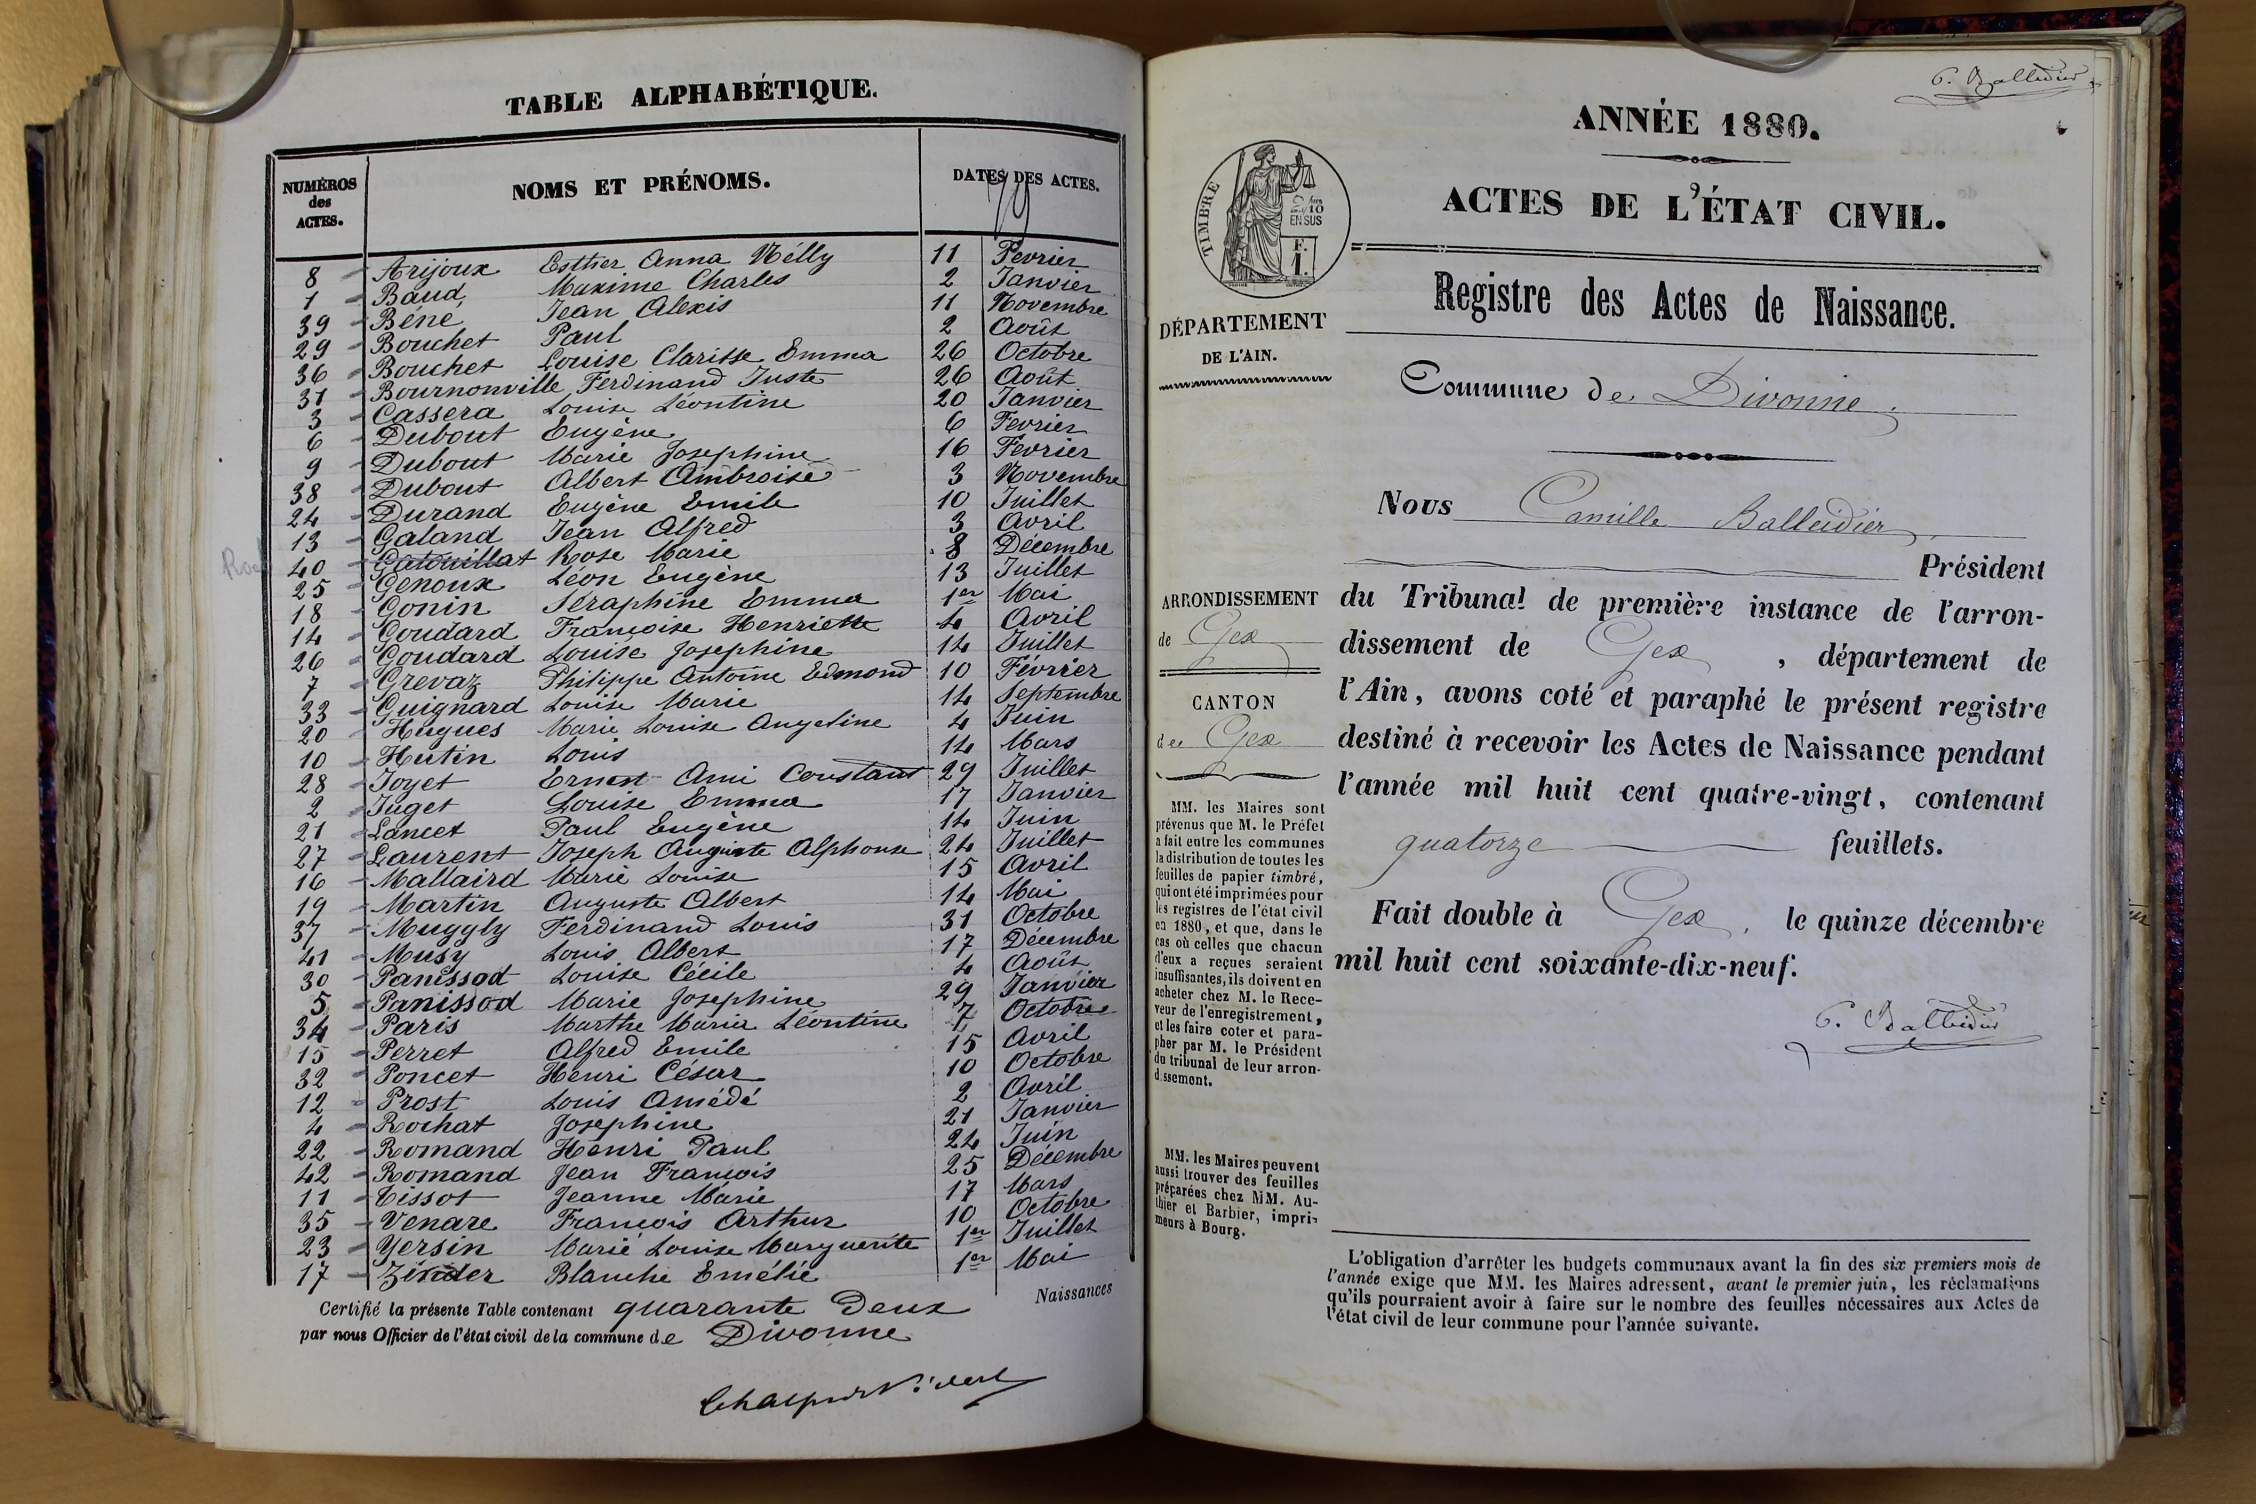 TABLE ALPHABÉTIQUE.
NUMÉROS des ACTES. NOMS ET PRÉNOMS. DATES DES ACTES.
79
8 Arijoux Esther Anna Nélly 11 Fevrier
1 Baud Maxime Charles 2 Janvier
39 Béné Jean Alexis 11 Novembre
29 Bouchet Paul 2 Août
36 Bouchet Louise Clarisse Emma 26 Octobre
31 Bournonville Ferdinand Juste 26 Août
3 Cassera Louise Léontine 20 Janvier
6 Dubout Eugène 6 Fevrier
9 Dubout Marie Josephine 16 Fevrier
38 Dubout Albert Ambroise 3 Novembre
24 Durand Eugène Emile 10 Juillet
13 Galand Jean Alfred 3 Avril
40 Gatouillat Rose Marie 8 Décembre
25 Genoux Léon Eugène 13 Juillet
18 Gonin Séraphine Emma 1er Mai
14 Goudard Françoise Henriette 4 Avril
26 Goudard Louise Josephine 14 Juillet
7 Grevaz Philippe Antoine Edmond 10 Février
33 Guignard Louise Marie 14 Septembre
20 Hugues Marie Louise Angeline 4 Juin
10 Hutin Louis 14 Mars
28 Joyet Ernest Ami Constant 29 Juillet
2 Juget Louise Emma 17 Janvier
21 Lancet Paul Eugène 14 Juin
27 Laurent Joseph Auguste Alphonse 24 Juillet
16 Mallaird Marie Louise 15 Avril
19 Martin Auguste Albert 14 Mai
37 Muggly Ferdinand Louis 31 Octobre
41 Musy Louis Albert 17 Décembre
30 Panissod Louise Cécile 4 Août
5 Panissod Marie Josephine 29 Janvier
34 Paris Marthe Maria Léontine 7 Octobre
15 Perret Alfred Emile 15 Avril
32 Poncet Henri César 10 Octobre
12 Prost Louis Amédé 2 Avril
4 Rochat Josephine 21 Janvier
22 Romand Henri Paul 24 Juin
42 Romand Jean François 25 Décembre
11 Tissot Jeanne Marie 17 Mars
35 Venare François Arthur 10 Octobre
23 Yersin Marie Louise Marguerite 1er Juillet
17 Zinder Blanche Emélie 1er Mai
Certifié la présente Table contenant quarante Deux Naissances
par nous Officier de l'état civil de la commune de Divonne
C. Balleidier
ANNÉE 1880.
ACTES DE L'ÉTAT CIVIL.
TIMBRE
2/10
EN SUS
F.
1.
Registre des Actes de Naissance.
DÉPARTEMENT
DE L'AIN.
Commune de Divonne.
Nous Camille Balleidier,
Président
du Tribunal de première instance de l'arron-
dissement de Gex, département de
l'Ain, avons coté et paraphé le présent registre
destiné à recevoir les Actes de Naissance pendant
l'année mil huit cent quatre-vingt, contenant
quatorze feuillets.
Fait double à Gex, le quinze décembre
mil huit cent soixante-dix-neuf.
C. Balleidier
ARRONDISSEMENT
de Gex
CANTON
de Gex
MM. les Maires sont
prévenus que M. le Préfet
a fait entre les communes
la distribution de toutes les
feuilles de papier timbré,
qui ont été imprimées pour
les registres de l'état civil
en 1880, et que, dans le
cas où celles que chacun
d'eux a reçues seraient
insuffisantes, ils doivent en
acheter chez M. le Rece-
veur de l'enregistrement,
et les faire coter et para-
pher par M. le Président
du tribunal de leur arron-
dissement.
MM. les Maires peuvent
aussi trouver des feuilles
préparées chez MM. Au-
thier et Barbier, impri-
meurs à Bourg.
L'obligation d'arrêter les budgets communaux avant la fin des six premiers mois de
l'année exige que MM. les Maires adressent, avant le premier juin, les réclamations
qu'ils pourraient avoir à faire sur le nombre des feuilles nécessaires aux Actes de
l'état civil de leur commune pour l'année suivante.